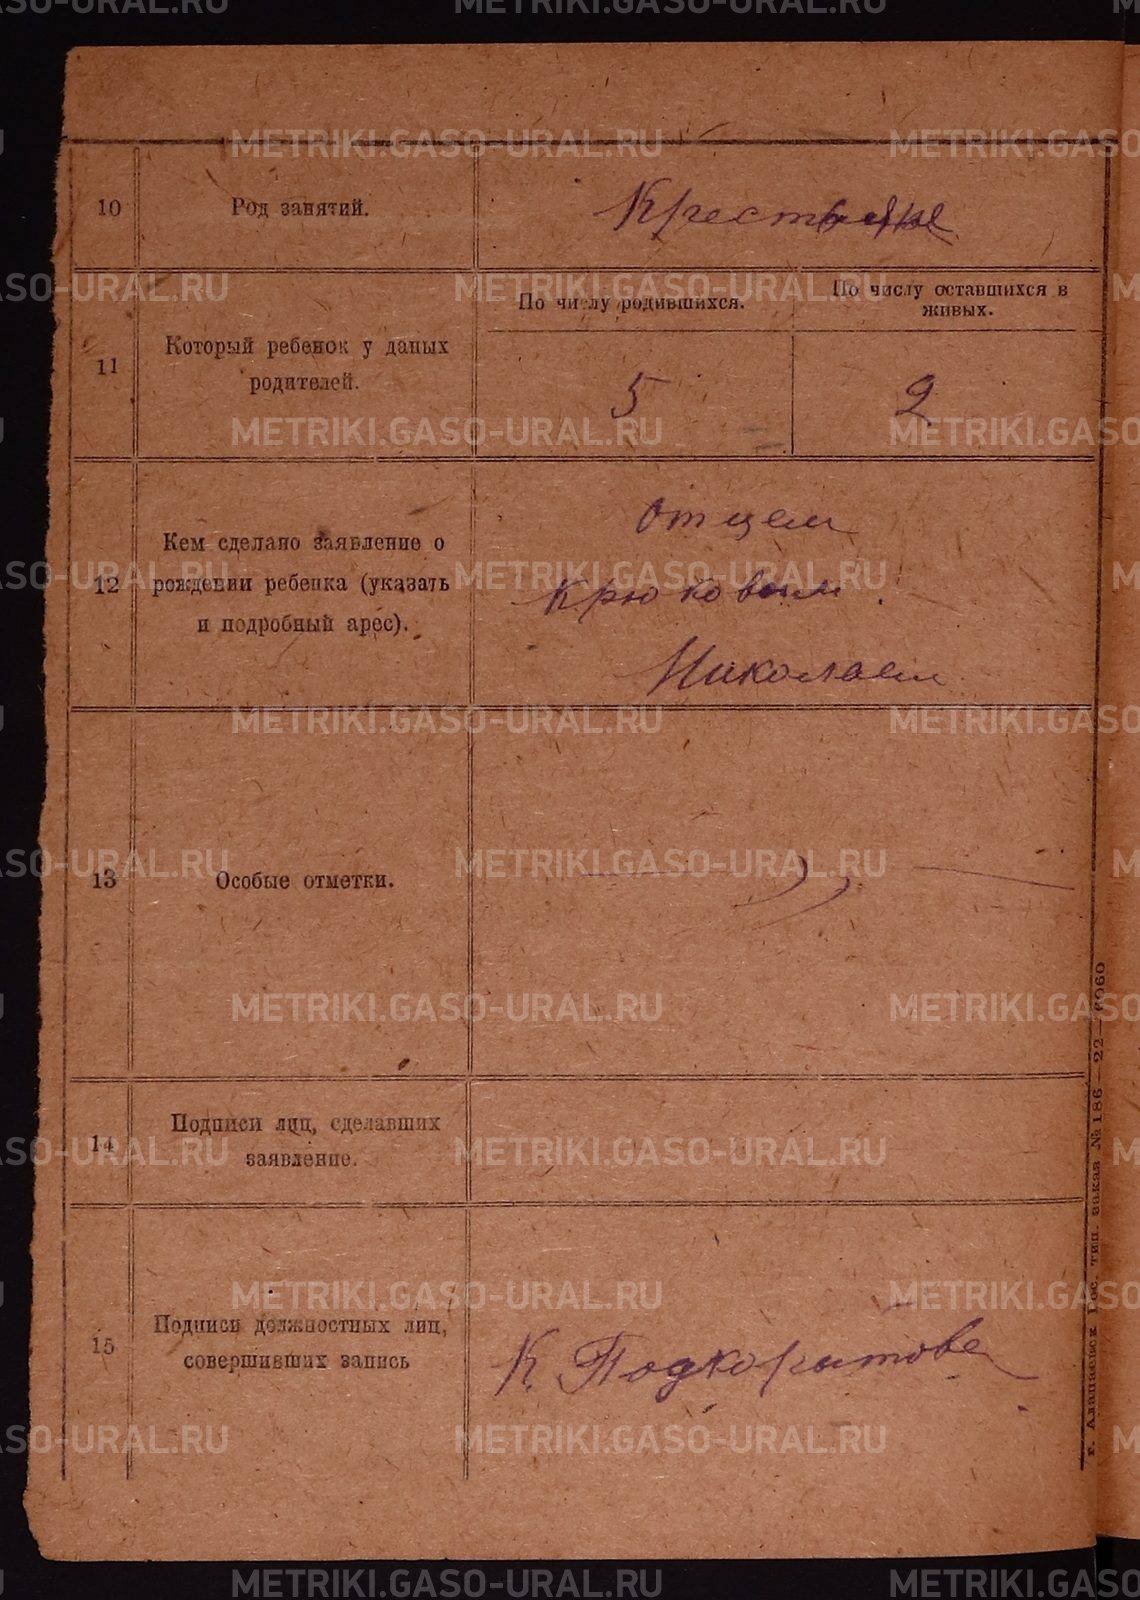 10 Род занятий. Крестьяне
11 Который ребенок у даных родителей.
По числу родившихся.
По числу оставшихся в живых.
5
2
12 Кем сделано заявление о
рождении ребенка (указать
и подробный арес).
Отцем
Крюковым
Николаем
13 Особые отметки.
— „ —
14 Подписи лиц, сделавших
заявление.
15 Подписи должностных лиц,
совершивших запись
К. Подкорытова
г. Алапаевск Гос. тип. заказ № 186 — 22—6060
METRIKI.GASO-URAL.RU